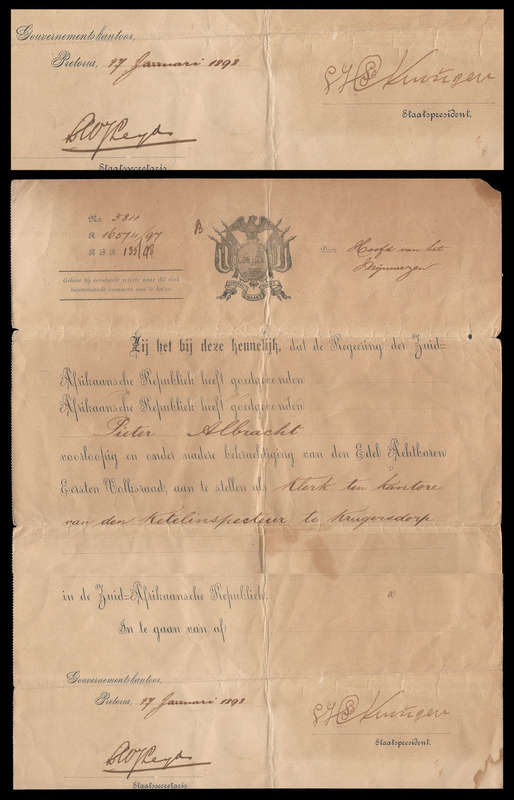 Gouvernementskantoor,
Pretoria, 27 Januari 1898
Staatspresident.
Staatssecretaris
No. 3811
R 16574/97
R.A. 135/98
B
Den Hoofd van het
Mijnwezen
Gelieve bij eventueele reactie naar dit stuk
Zij het bij deze kennelijk, dat de Regeering der Zuid=
Afrikaansche Republiek heeft goedgevonden
Afrikaansche Republiek heeft goedgevonden
Pieter Albracht
voorloopig en onder nadere bekrachtiging van den Edel Achtbaren
Eersten Volksraad, aan te stellen als Klerk ten kantore
van den Ketelinspecteur te Krugersdorp
in de Zuid=Afrikaansche Republiek.
In te gaan van af
Gouvernementskantoor,
Pretoria, 27 Januari 1898
Staatspresident.
Staatssecretaris